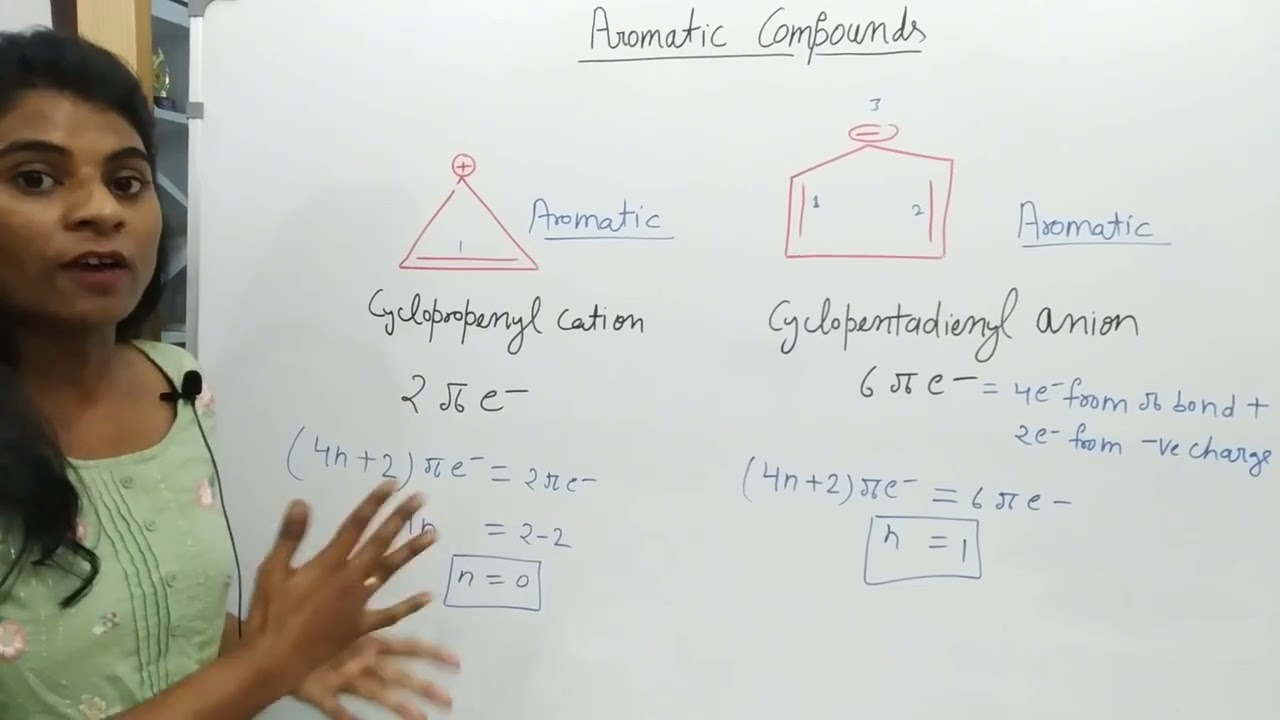 Aromatic Compounds
⊕
1
Aromatic
Cyclopropenyl cation
2πe⁻
(4n+2)πe⁻ = 2πe⁻
4n = 2-2
n = 0
3
⊖
1 2
Aromatic
Cyclopentadienyl anion
6πe⁻ = 4e⁻ from π bond +
2e⁻ from -ve charge
(4n+2)πe⁻ = 6πe⁻
n = 1